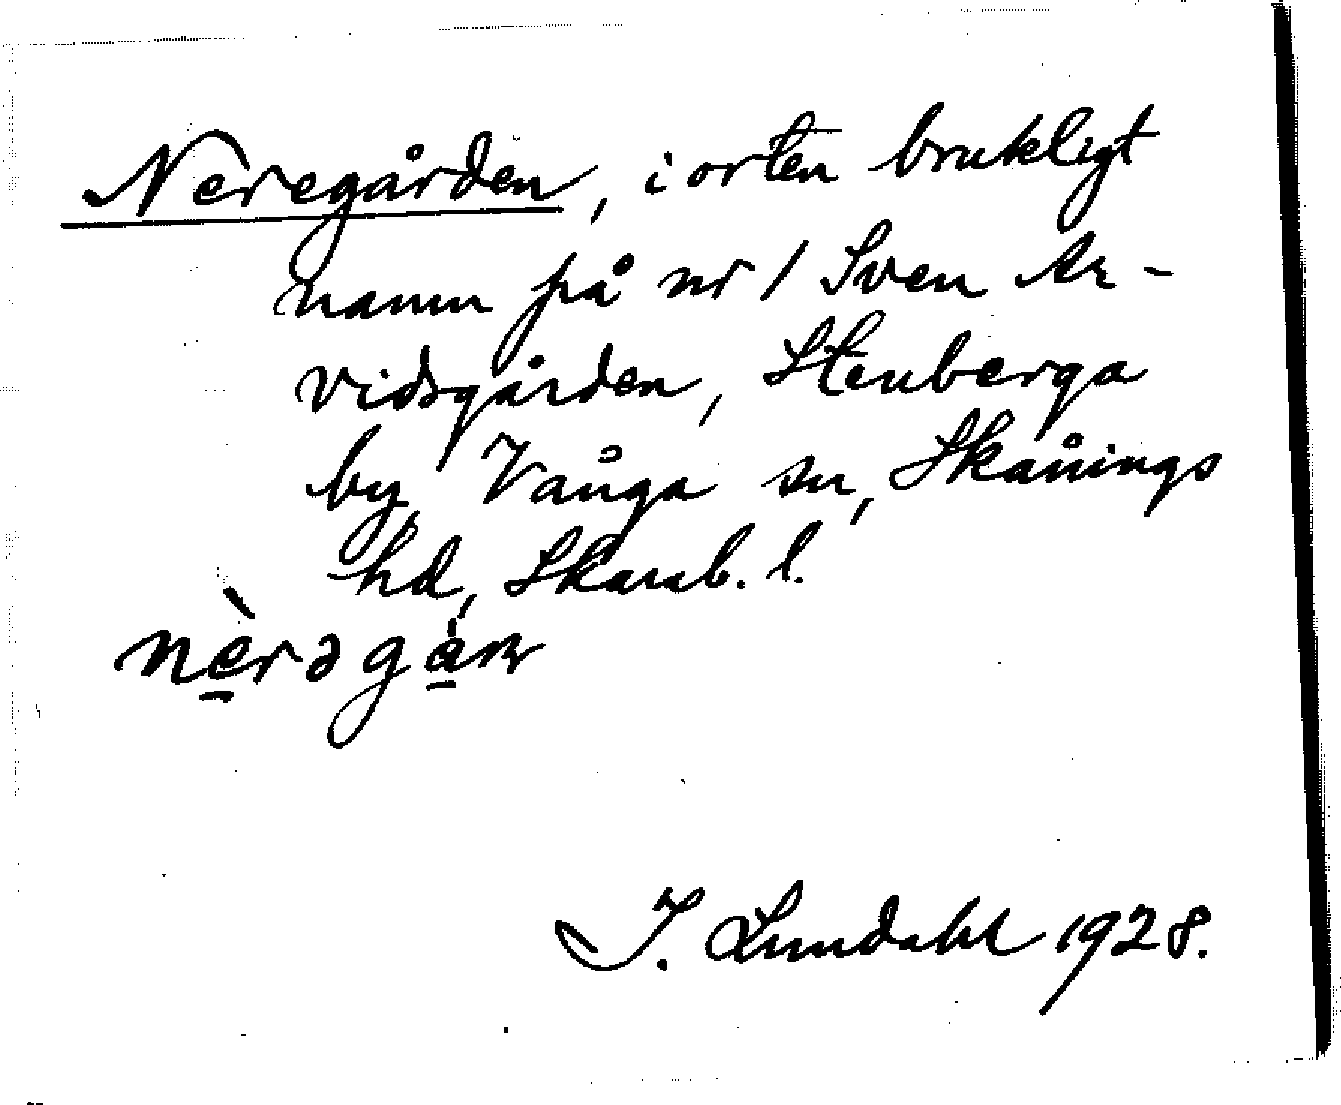 Neregården, i orten brukligt
namn på nr 1 Sven Ar-
vidsgården, Stenberga
by, Vånga sn, Skånings
hd, Skarab. l.
nèrəgàṇ
I. Lundahl 1928.